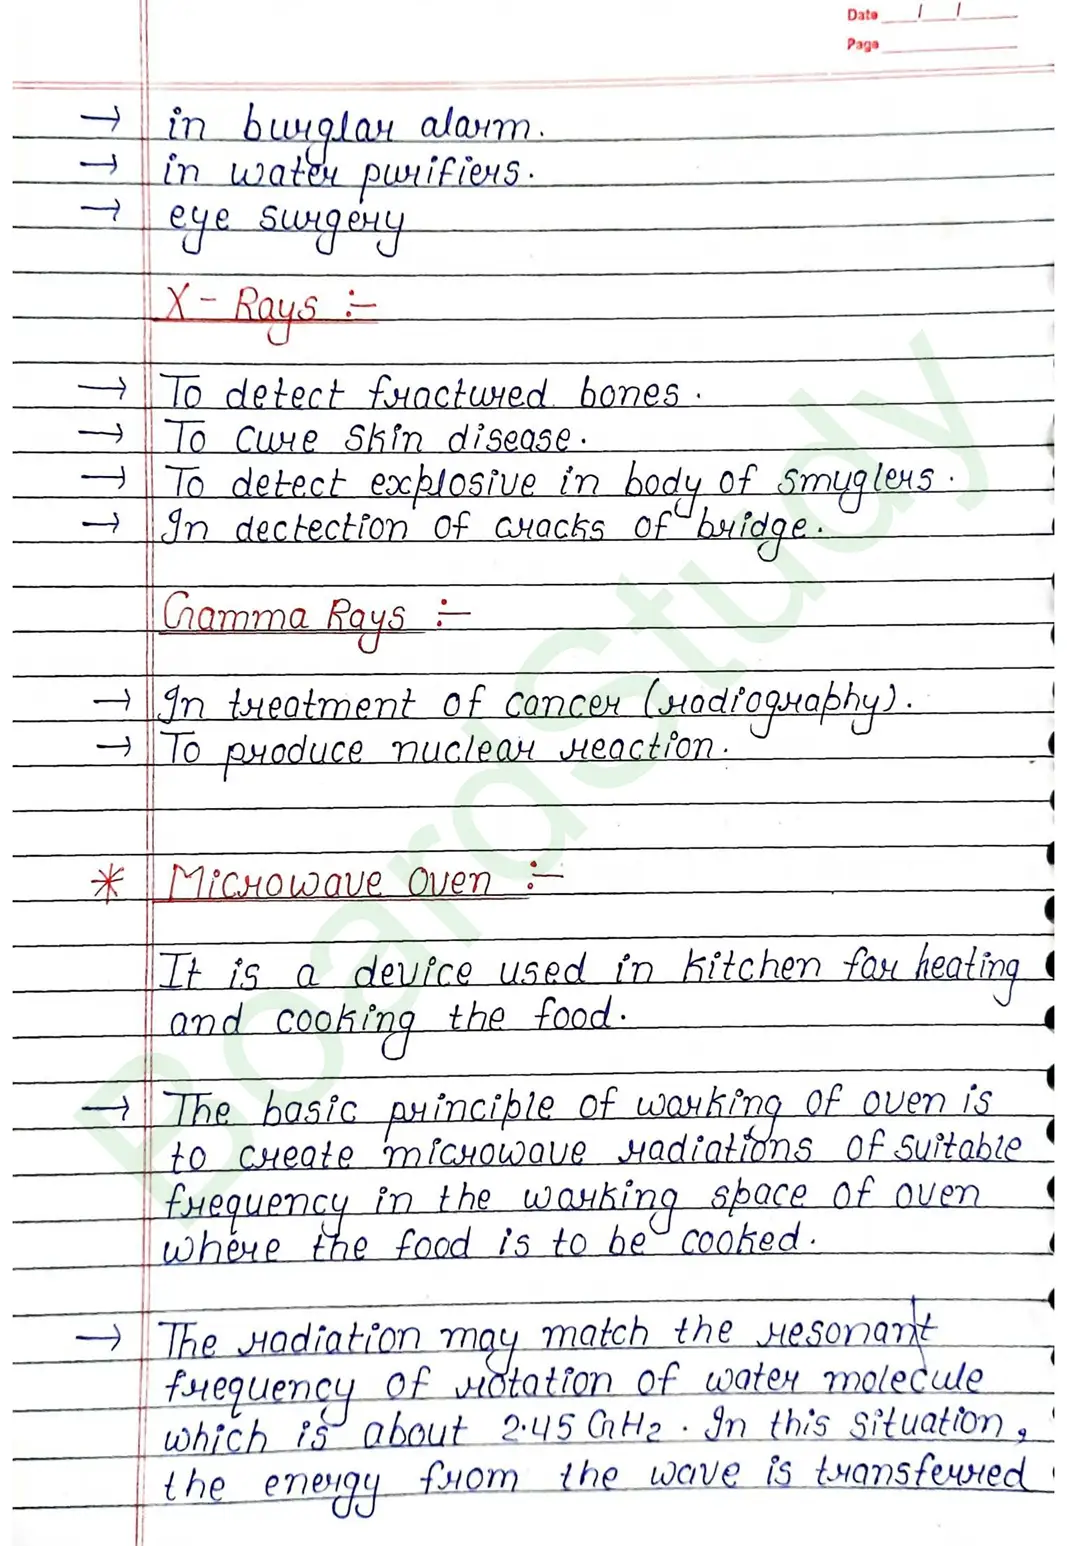 Date / /
Page
→ in burglar alarm.
→ in water purifiers.
→ eye surgery
X-Rays :-
→ To detect fractured bones.
→ To cure skin disease.
→ To detect explosive in body of smuglers.
→ In dectection of cracks of bridge.
Gamma Rays :-
→ In treatment of cancer (radiography).
→ To produce nuclear reaction.
* Microwave Oven :-
It is a device used in kitchen for heating
and cooking the food.
→ The basic principle of working of oven is
to create microwave radiations of suitable
frequency in the working space of oven
where the food is to be cooked.
→ The radiation may match the resonant
frequency of rotation of water molecule
which is about 2.45 GHz. In this situation,
the energy from the wave is transferred
BoardStudy